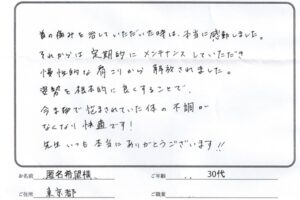 首の痛みを治していただいた時は、本当に感動しました。
それからは定期的にメンテナンスしていただき
慢性的な肩こりから解放されました。
姿勢を根本的に良くすることで、
今まで悩まされていた体の不調が
なくなり快適です!
先生いつも本当にありがとうございます!!
お名前 匿名希望様 ご年齢 30代
ご住所 東京都 ご職業